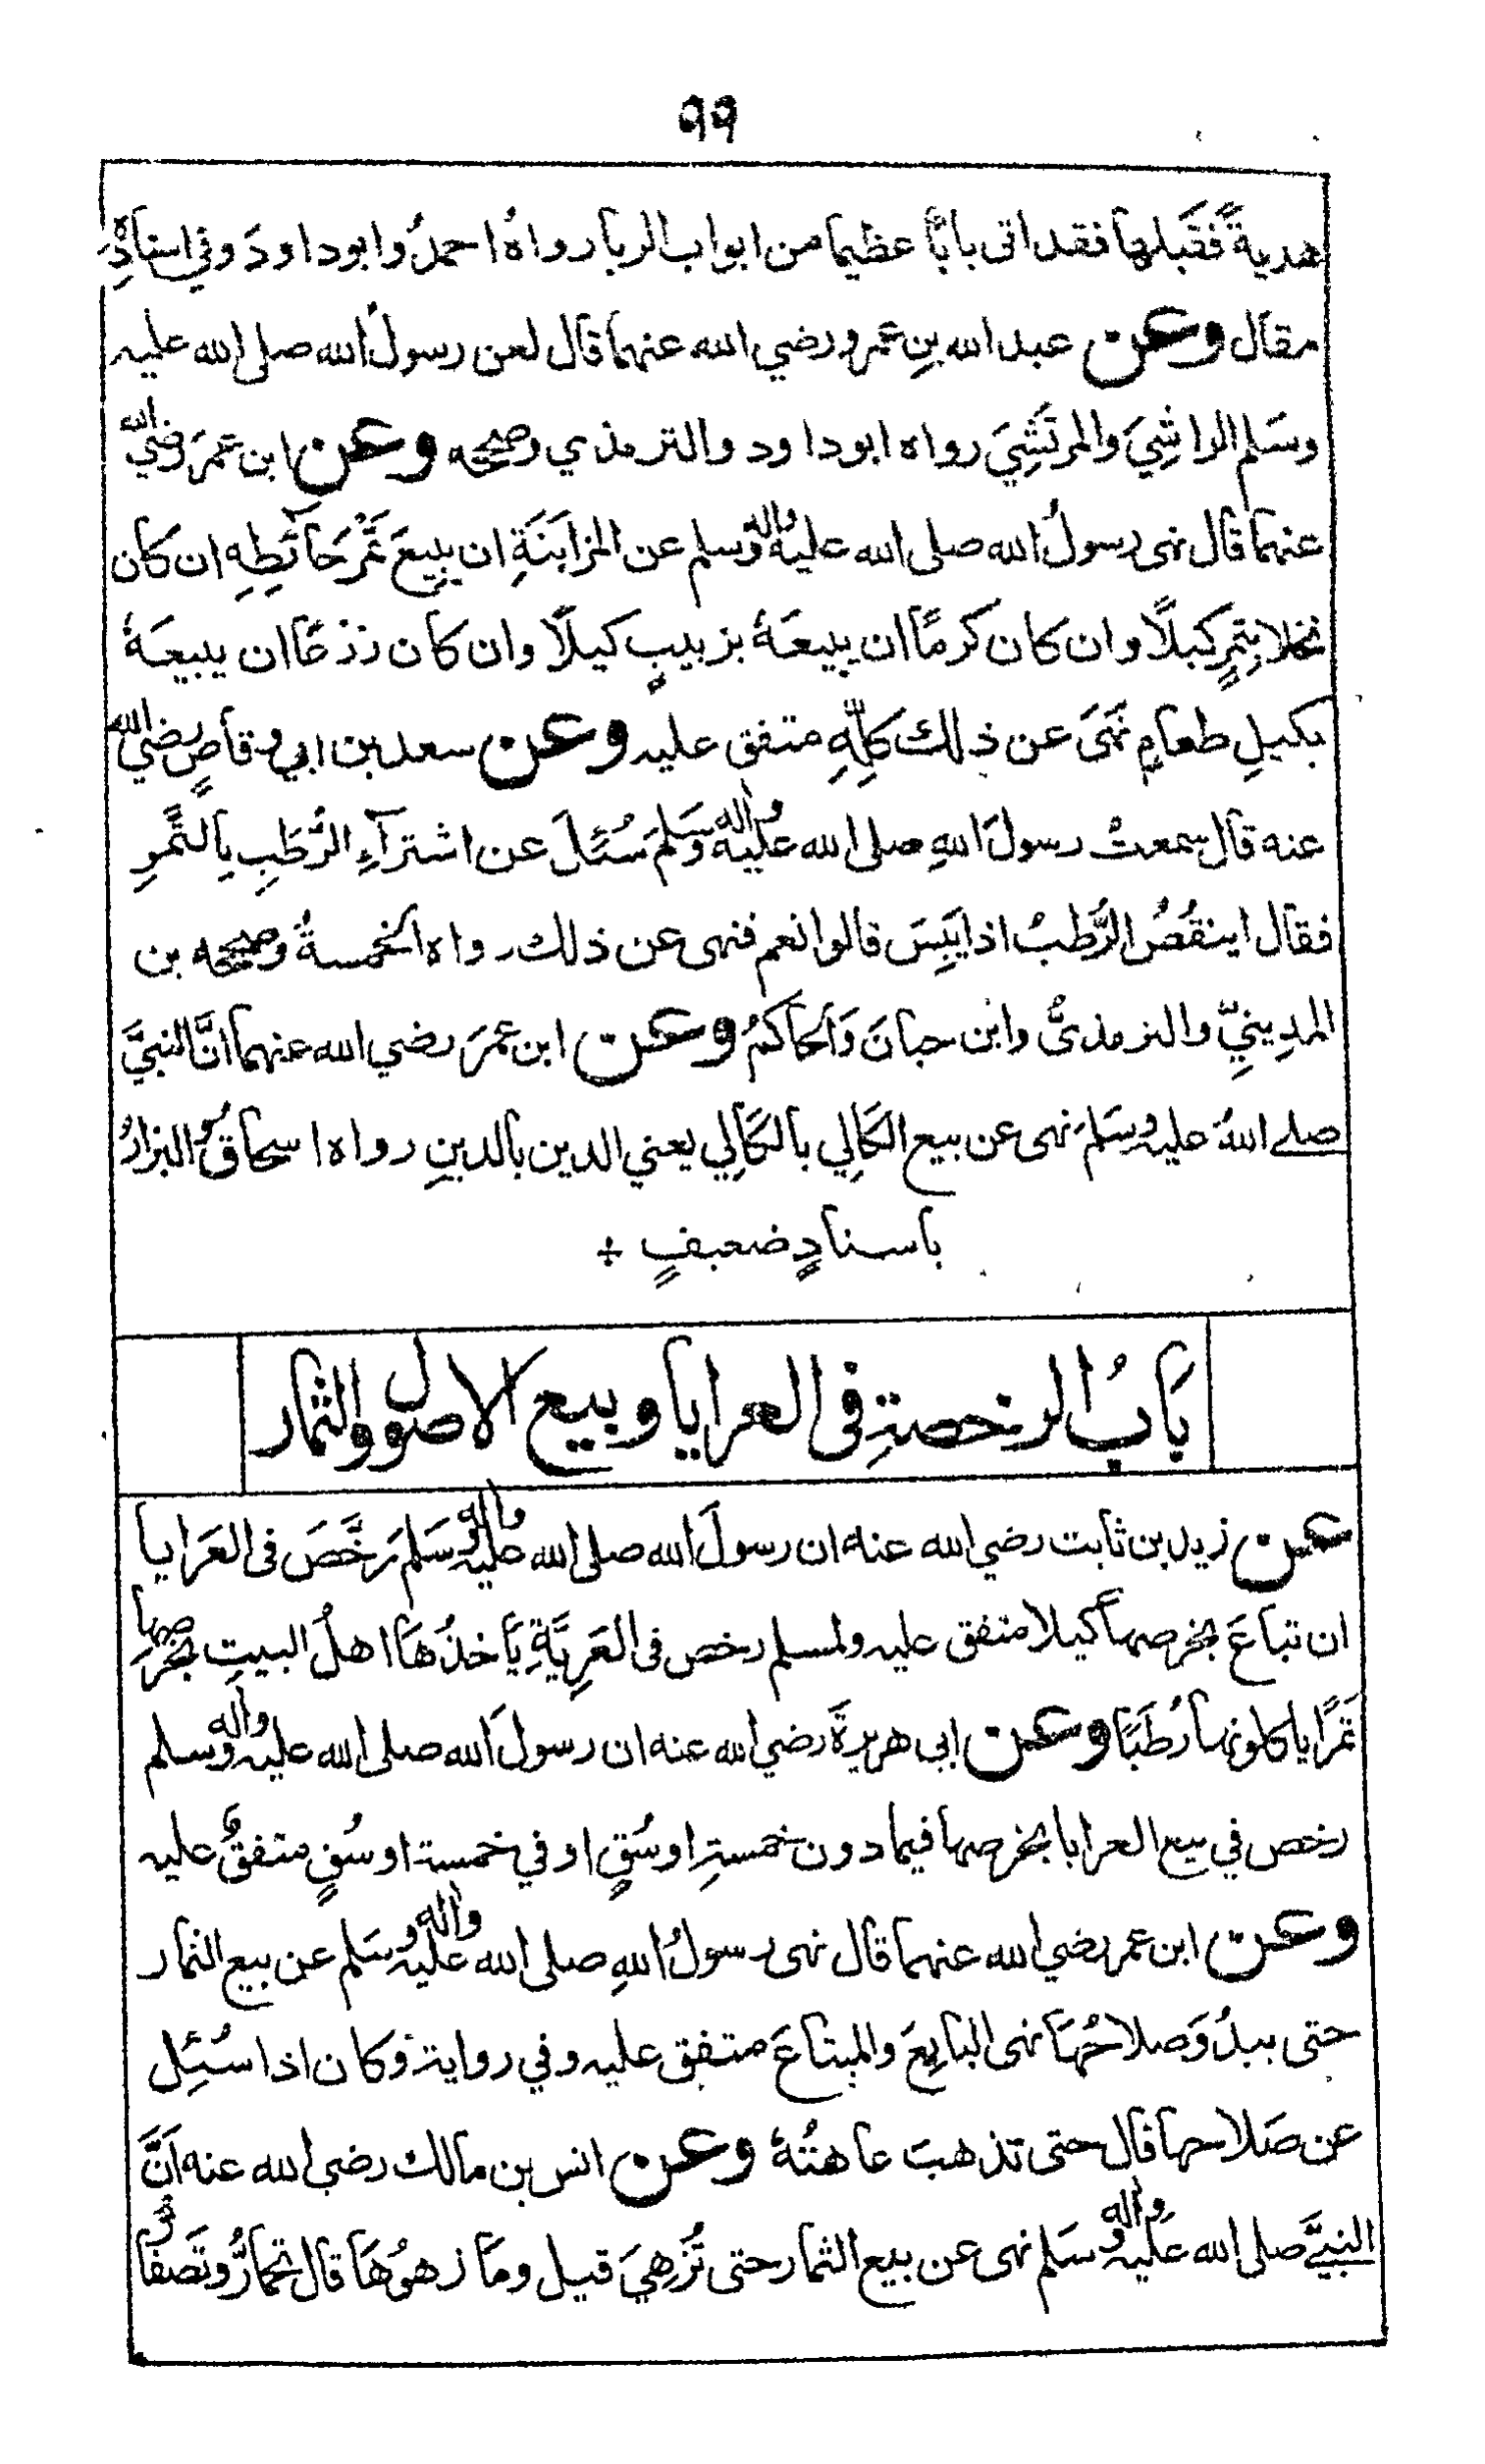 ٩٩
هديةً فقَبلها فقد اتى بابًا عظيما من ابواب الربا رواهُ احمدُ وابوداودَ وفي اسنادِهٖ
مقال وعن عبد الله بنِ عمرو رضي الله عنهما قال لعن رسولُ الله صلى الله عليه
وسَلم الراشِيَ والمرتَشِيَ رواه ابوداود والترمذي وصححه وعن ابن عمرَ رضي الله
عنهما قال نهى رسولُ الله صلى الله عليه واله وسلم عن المزابَنَةِ ان يبِيعَ ثَمْرَ حَآئَطِهِ ان كان
نخلا بتمرٍ كيلاً وان كان كرمًا ان يبيعَهٗ بزبيبٍ كيلاً وان كان زرعًا ان يبيعَهٗ
بكيلِ طعامٍ نَهَى عن ذلك كلِّهِ متفق عليه وعن سعد بن ابي وقاصٍ رضي الله
عنه قال سمعتُ رسولَ اللهِ صلى الله عليه واله وسَلمَ سُئلَ عن اشترآءِ الرُّطَبِ بِالتَّمرِ
فقال اينقُصُ الرُّطَبُ اذا يَبِسَ قالوا نعم فنهى عن ذلك رواه الخمسةُ وصححه بن
المدِينيّ والترمذىُّ وابن حبانَ وَالحاكمُ وعن ابن عمرَ رضي الله عنهما انَّ النبيَّ
صلے اللهُ عليه وسَلمَ نهى عن بيع الكَالِي بالكَالِي يعني الدين بالدينِ رواه اسحاق والبزارُ
باسنادٍ ضعيفٍ ÷
بَابُ الرخصةِ فى العرايا وبيع الاصول والثمار
عن زيد بن ثابت رضي الله عنه ان رسولَ الله صلى الله عليه واله وسَلم رَخَّصَ فى العَرايا
ان تباعَ بخرصهاَ كيلا متفق عليه ولمسلم رخص فى العَرِيَّةِ يَأخذُهَا اهلُ البيتِ بخرصها
تَمرًا ياكلونها رُطَبًا وعن ابي هريرةَ رضي الله عنه ان رسولَ الله صلى الله عليه واله وسلم
رخص في بيع العرايا بخرصها فيما دون خمسةِ اوسُقٍ او في خمسة اوسُقٍ متفقٌ عليه
وعن ابن عمر رضي الله عنهما قال نهى رسولُ اللهِ صلى الله عليه واله وسَلم عن بيع الثمار
حتى يبدُوَ صلاحُهَا نهى البايِعَ والمبتاعَ متفق عليه وفي رواية وكان اذا سُئِل
عن صَلاحها قال حتى تذهبَ عاهتُهٗ وعن انس بن مالك رضي الله عنه اَنَّ
النبيَّے صلى الله عليه واله وسَلم نهى عن بيع الثمار حتى تُزهِيَ قيل ومَا زهوُهَا قال تحمارُّ وتَصفارُّ